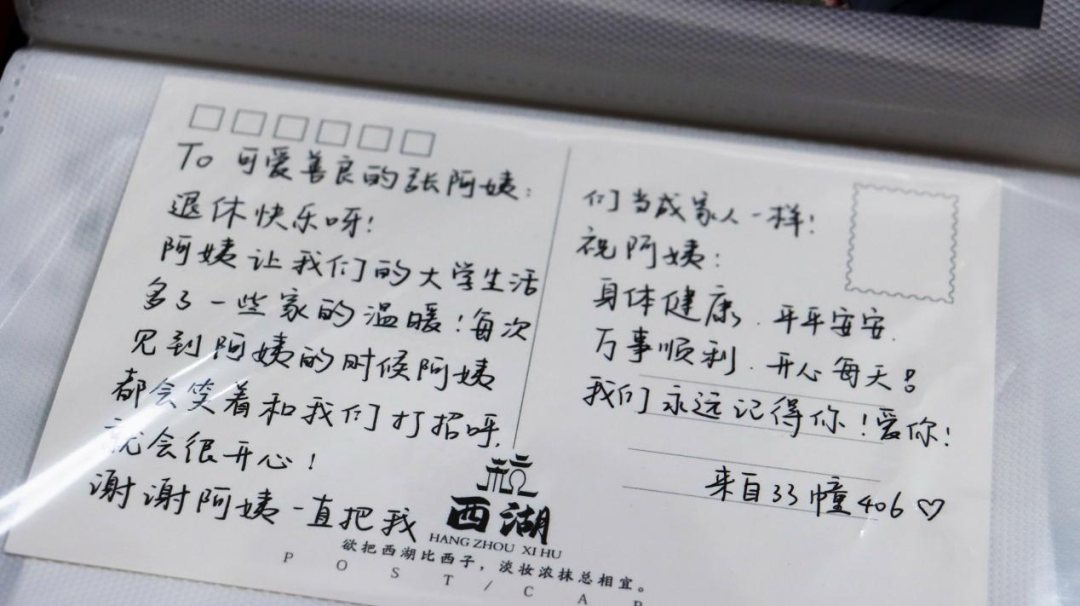 To 可爱善良的张阿姨:
退休快乐呀!
阿姨让我们的大学生活
多了一些家的温暖!每次
见到阿姨的时候阿姨
都会笑着和我们打招呼,
就会很开心!
谢谢阿姨一直把我
们当成家人一样!
祝阿姨:
身体健康、平平安安、
万事顺利、开心每天!
我们永远记得你!爱你!
来自33幢406♡
西湖
HANG ZHOU XI HU
欲把西湖比西子,淡妆浓抹总相宜。
POST/CAR